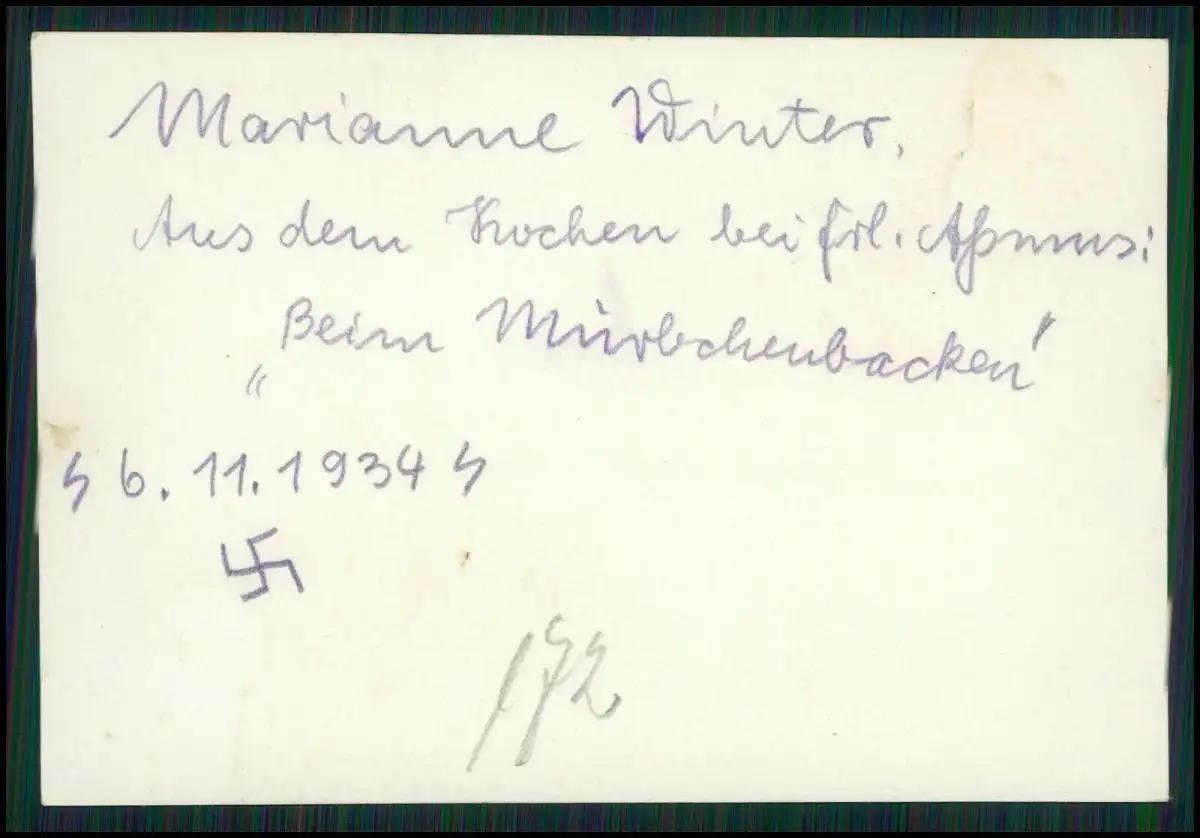 Marianne Winter.
Aus dem Kochen bei Frl. Aßmus:
"Beim Mürbchenbacken"
ϟ 6. 11. 1934 ϟ
卐
172